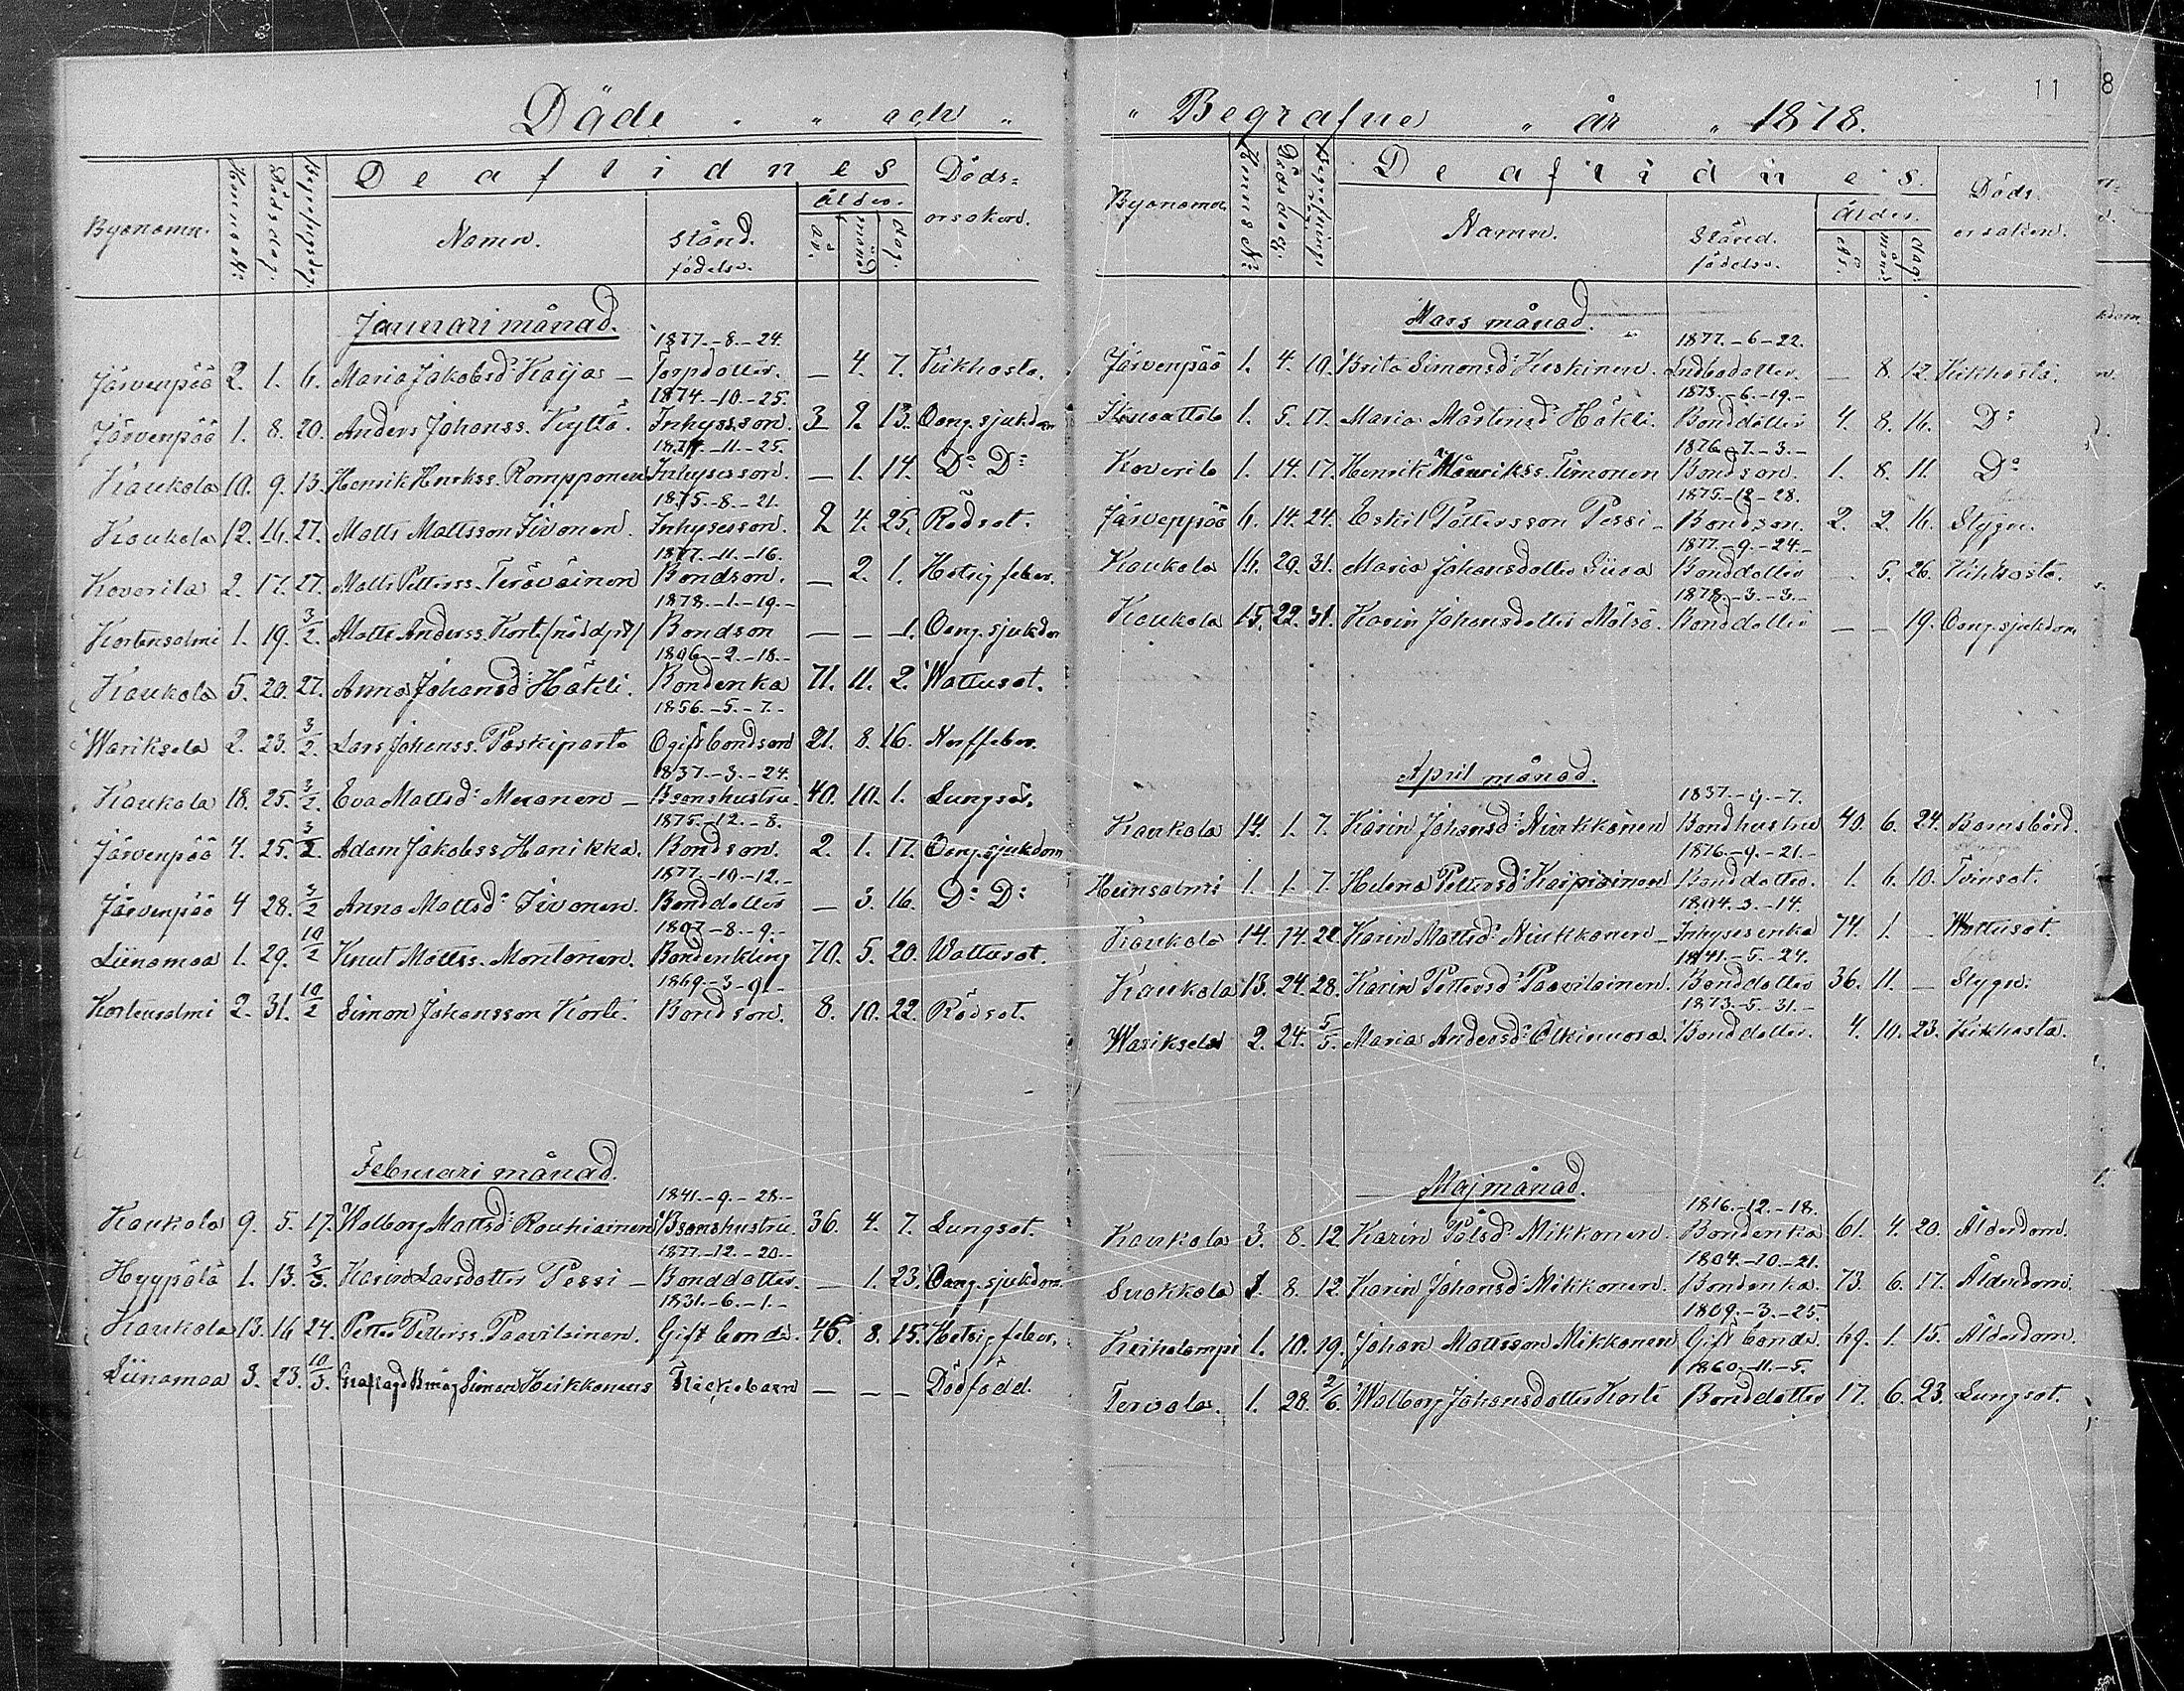 Döde och
Byanamn. Hemms №: Dödsdag. Begrafngsdag. De aflidnes Namn. Stånd. födelse. ålder. år. månad dag. Döds= orsaken.
Januari månad.
1877.-8.-24.
Järvenpää 2. 1. 6. Maria Jakobsd: Kaijas — Torpdotter. — 4. 7. Kikhosta.
1874.-10.-25.
Järvenpää 1. 8. 20. Anders Johanss. Kyttä. Inhysesson. 3 2 13. Oang. sjukdom
1877.-11.-25.
Kaukola 10. 9. 13. Henrik Henrikss. Rompponen Inhysesson. — 1. 14. D:o D:o
1875.-8.-21.
Kaukola 12. 16. 27. Matts Mattsson Iivonen. Inhysesson. 2 4. 25. Rödsot.
1877.-11.-16.
Koverila 2. 17. 27. Matts Petterss. Teräväinen Bondson. — 2. 1. Hetsig feber.
1878.-1.-19.-
Kortensalmi 1. 19. 3/2. Matts Anderss. Korte /nöddpt/ Bondson — — 1. Oang. sjukdom
1806.-2.-18.-
Kaukola 5. 20. 27. Anna Johansd: Häkli. Bondenka 71. 11. 2. Wattusot.
1856.-5.-7.-
Wariksela 2. 23. 3/2. Lars Johanss. Paskiparta Ogift bondson 21. 8. 16. Nerffeber.
1837.-3.-24.
Kaukola 18. 25. 3/2. Eva Mattsd: Meronen — Bsonshustru. 40. 10. 1. Lungsot.
1875.-12.-8.
Järvenpää 4. 25. 3/2. Adam Jakobss. Hanikka. Bondson. 2. 1. 17. Oang. sjukdom
1877.-10.-12.-
Järvenpää 4 28. 3/2 Anna Mattsd: Iivonen. Bonddotter — 3. 16. D:o D:o
1807-8.-9.-
Liinamaa 1. 29. 10/2 Knut Mattss. Montonen. Bondenkling 70. 5. 20. Wattusot.
1869.-3-9.-
Kortensalmi 2. 31. 10/2 Simon Johansson Korte. Bondson. 8. 10. 22. Rödsot.
Februari månad.
1841.-9.-28.-
Kaukola 9. 5. 17. Walborg Mattsd: Rouhiainen Bsonshustru. 36. 4. 7. Lungsot.
1877.-12.-20.-
Hyypälä 1. 13. 3/3. Karin Larsdotter Pessi — Bonddotter. — 1. 23. Oang. sjukdom
1831.-6.-1.-
Kaukola 13. 16 24. Petter Petterss. Paavilainen. Gift bonde. 46. 8. 15. Hetsig feber.
Liinamaa 3. 23. 10/3. Simon Heikkonens Flickebarn — — — Dödfödd.
Begrafne år 1878.
11
Byanamn Hemms №: Döds dag. Begrafnings dag. De aflidnes. Namn. Stånd. födelse. Ålder. år. månad. dag. Döds. orsaken.
Mars månad.
1877.-6-22.
Järvenpää 1. 4. 10. Brita Simonsd: Keskinen. Indbodotter. — 8. 12. Kikhosta.
1873.-6.-19.-
1. 5. 17. Maria Mårtensd: Häkli. Bonddotter 4. 8. 16. D:o
1876.-7.-3.-
Koverila 1. 14. 17. Henrik Henrikss. Timonen Bondson. 1. 8. 11. D:o
1875.-12-28.
Järvenpää 6. 14. 24. Eskil Pettersson Pessi — Bondson. 2. 2. 16. Stygn.
1877.-9.-24.-
Kaukola 16. 20. 31. Maria Johansdotter Siira Bonddotter — 5. 26. Kikhosta.
1878.-3.-3.-
Kaukola 15. 22. 31. Karin Johansdotter Mälsä. Bonddotter — — 19. Oang. sjukdom
April månad.
1837.-9.-7.
Kaukola 14. 1. 7. Karin Johansd: Nuikkanen Bondhustru 40. 6. 24. Barnsbörd.
1876.-9.-21.-
Heinsalmi 1. 1. 7. Helena Pettersd: Karpiainen Bonddotter. 1. 6. 10. Tvinsot.
1804.3.-14.
Kaukola 14. 14. 22 Karin Mattsd: Nuikkanen — Inhysesenka 74. 1. — Wattusot.
1841.-5.-24.
Kaukola 13. 24. 28. Karin Pettersd: Paavilainen. Bonddotter 36. 11. — Stygn.
1873.-5.-31.-
Wariksela 2. 24. 5/5. Maria Andersd: Ölkinuora. Bonddotter. 4. 10. 23. Kikhosta.
Maj månad.
1816.-12.-18.
Kaukola 3. 8. 12. Karin Pålsd: Mikkonen. Bondenka 61. 4. 20. Ålderdom.
1804.-10.-21.
Suokkola 1. 8. 12. Karin Johansd: Mikkonen. Bondenka. 73. 6. 17. Ålderdom.
1809.-3.-25.
Keiholampi 1. 10. 19. Johan Mattsson Mikkonen Gift bonde. 69. 1. 15. Ålderdom.
1860.-11.-5.
Tervola. 1. 28. 2/6. Walborg Johansdotter Korte Bonddotter 17. 6. 23. Lungsot.
8